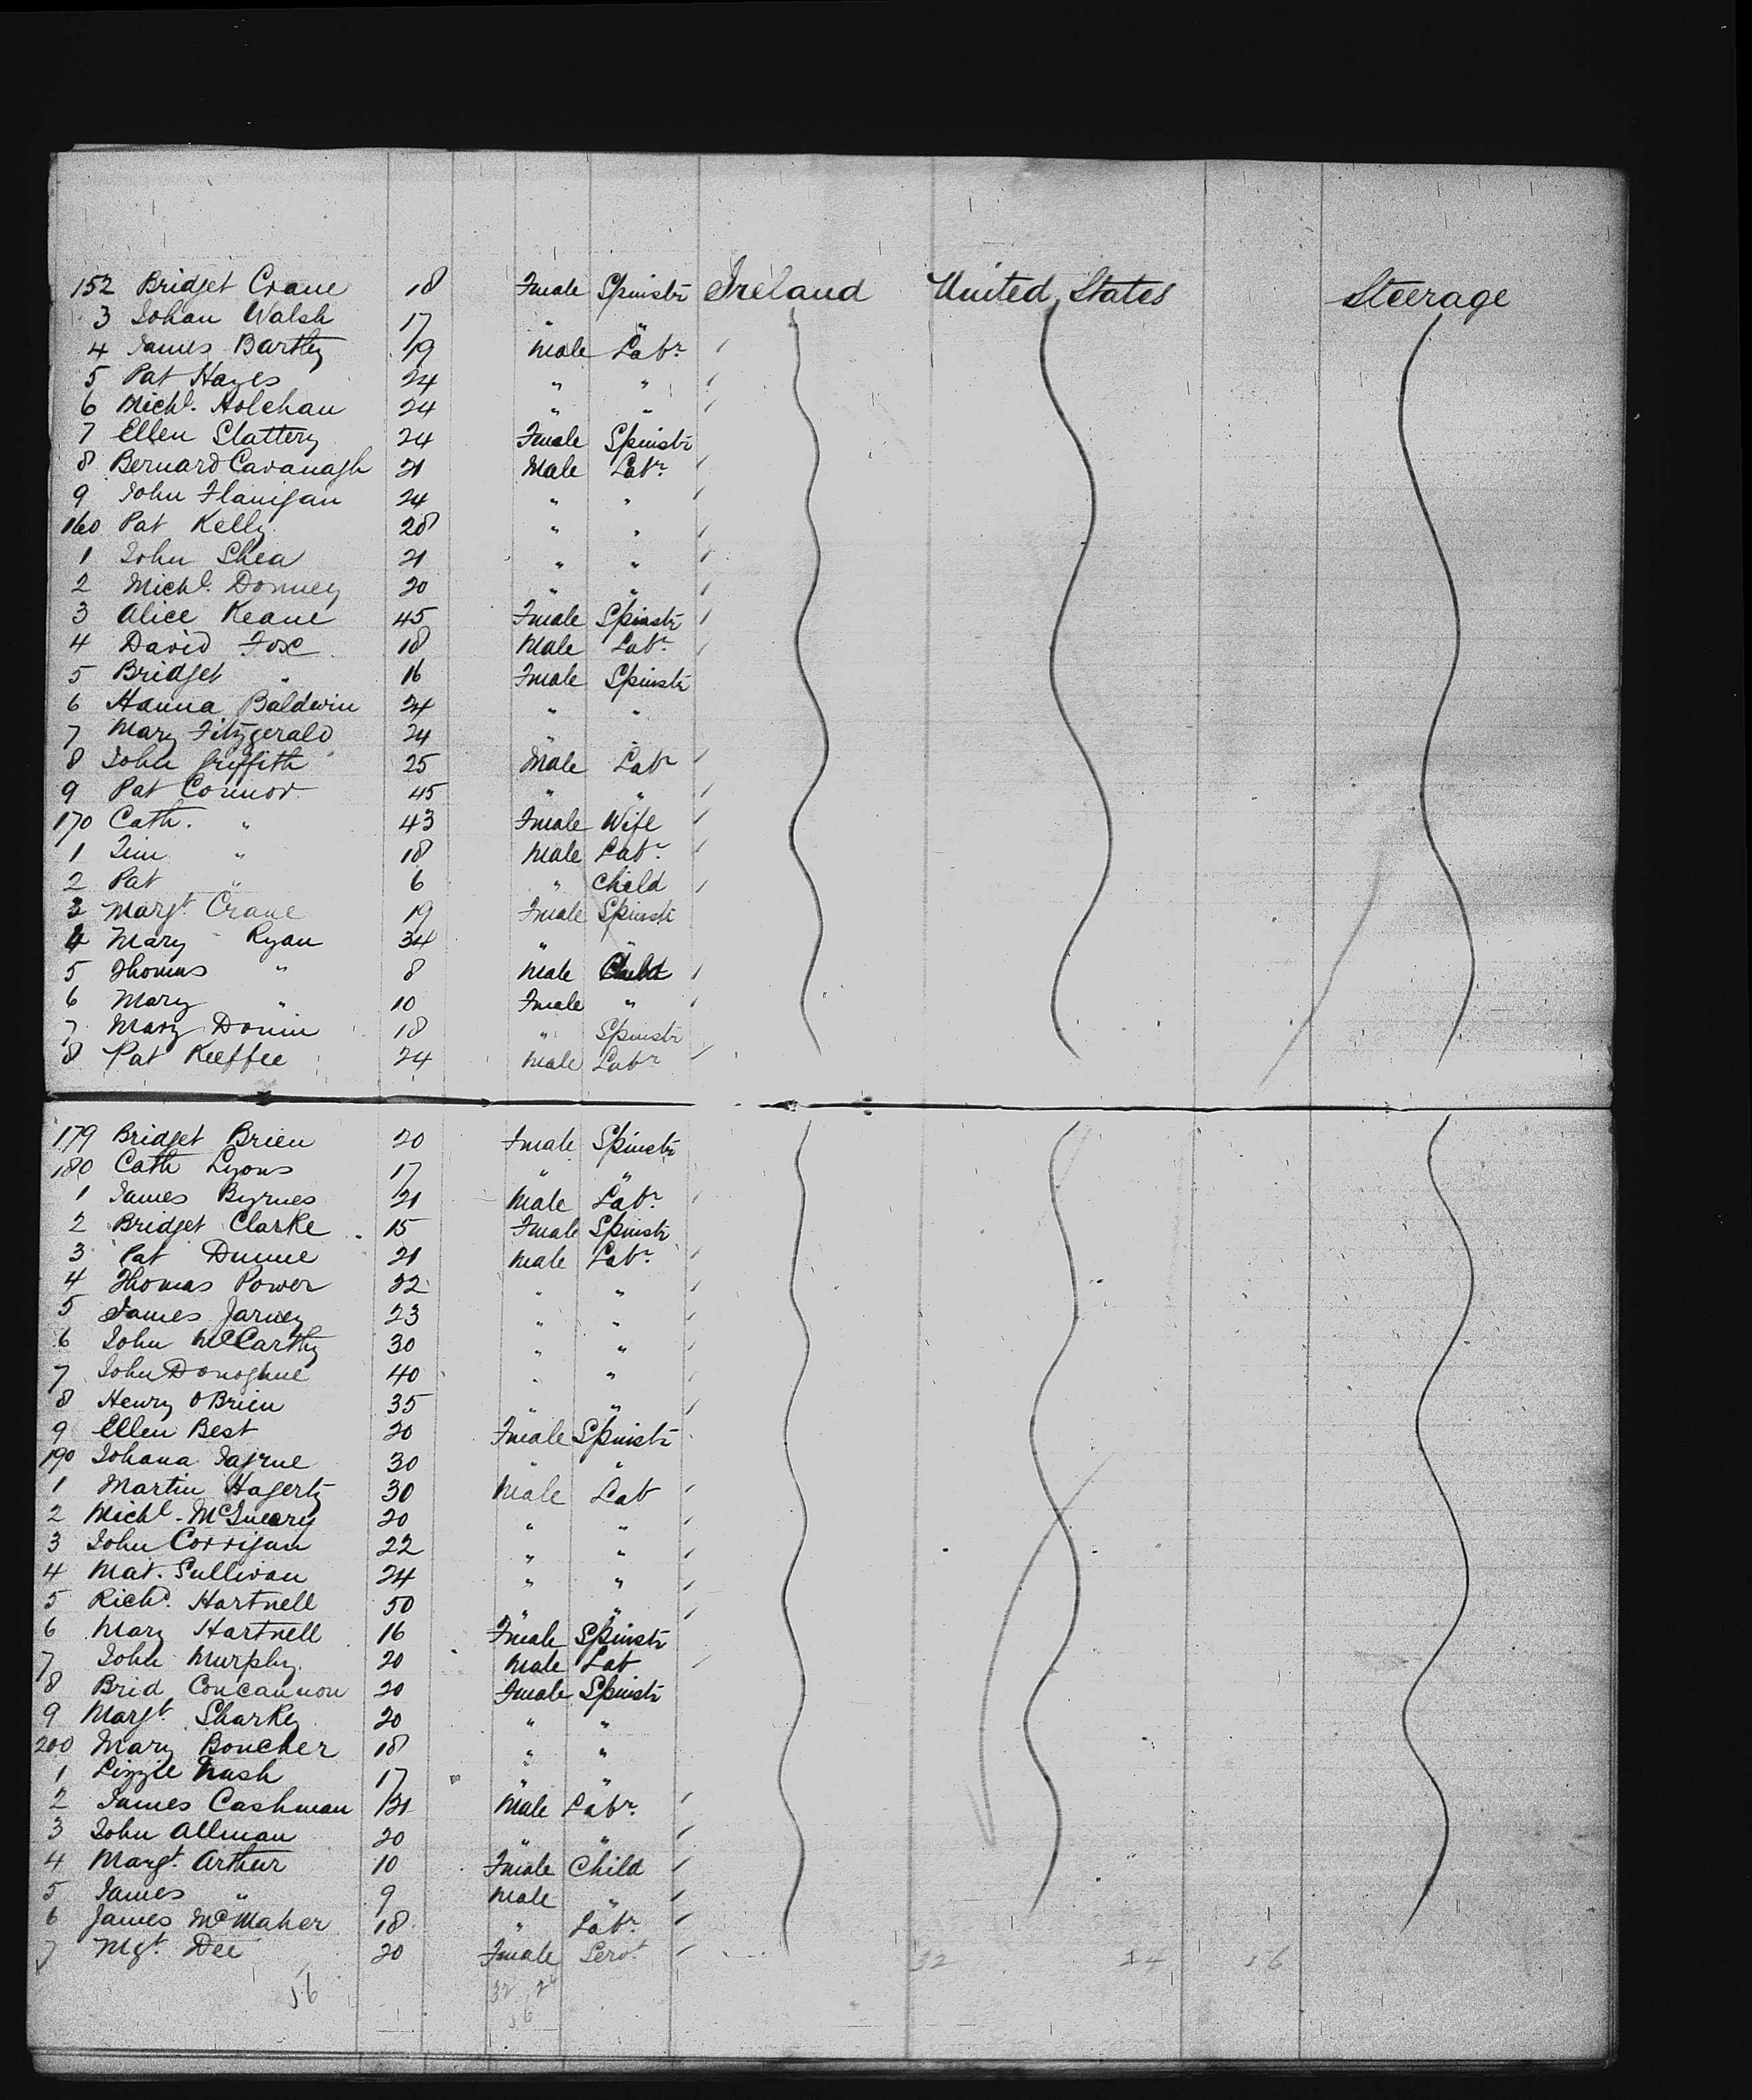 152 Bridget Crane 18 Fmale Spinstr Ireland United States Steerage
3 Johan Walsh 17 " "
4 James Bartley 19 Male Labr
5 Pat Hayes 24 " "
6 Michl. Holehan 24 " "
7 Ellen Slattery 24 Fmale Spinstr
8 Bernard Cavanagh 21 Male Labr
9 John Flanigan 24 " "
160 Pat Kelly 28 " "
1 John Shea 21 " "
2 Michl. 20 " "
3 Alice Keane 45 Fmale Spinstr
4 David Fox 18 Male Labr
5 Bridget " 16 Fmale Spinstr
6 Hanna Baldwin 24 " "
7 Mary Fitzgerald 24 " "
8 John Griffith 25 Male Labr
9 Pat Connor 45 " "
170 Cath. " 43 Fmale Wife
1 Tim " 18 Male Labr
2 Pat " 6 " Child
3 Margt. Crane 19 Fmale Spinstr
4 Mary Ryan 34 " "
5 Thomas " 8 Male Child
6 Mary " 10 Fmale "
7 Mary 18 " Spinstr
8 Pat Keeffee 24 Male Labr
179 Bridget Brien 20 Fmale Spinstr
180 Cath Lyons 17 " "
1 James Byrnes 21 Male Labr
2 Bridget Clarke 15 Fmale Spinstr
3 Pat Dunne 21 Male Labr
4 Thomas Power 22 " "
5 James 23 " "
6 John McCarthy 30 " "
7 John Donoghue 40 " "
8 Henry OBrien 35 " "
9 Ellen Best 20 Fmale Spinstr
190 Johana 30 " "
1 Martin Hagerty 30 Male Lab
2 Michl. 20 " "
3 John Corrigan 22 " "
4 Mat. Sullivan 24 " "
5 Richd. Hartnell 50 " "
6 Mary Hartnell 16 Fmale Spinstr
7 John Murphy 20 Male Lab
8 Brid Concannon 20 Fmale Spinstr
9 Margt. Sharkey 20 " "
200 Mary Boucher 18 " "
1 Lizzie Nash 17 " "
2 James Cashman 21 Male Labr.
3 John Allman 20 " "
4 Margt. Arthur 10 Fmale Child
5 James " 9 Male "
6 James McMaher 18 " Labr.
7 Mgt. Dee 20 Fmale Servt.
32 24 56
56 32 24
56